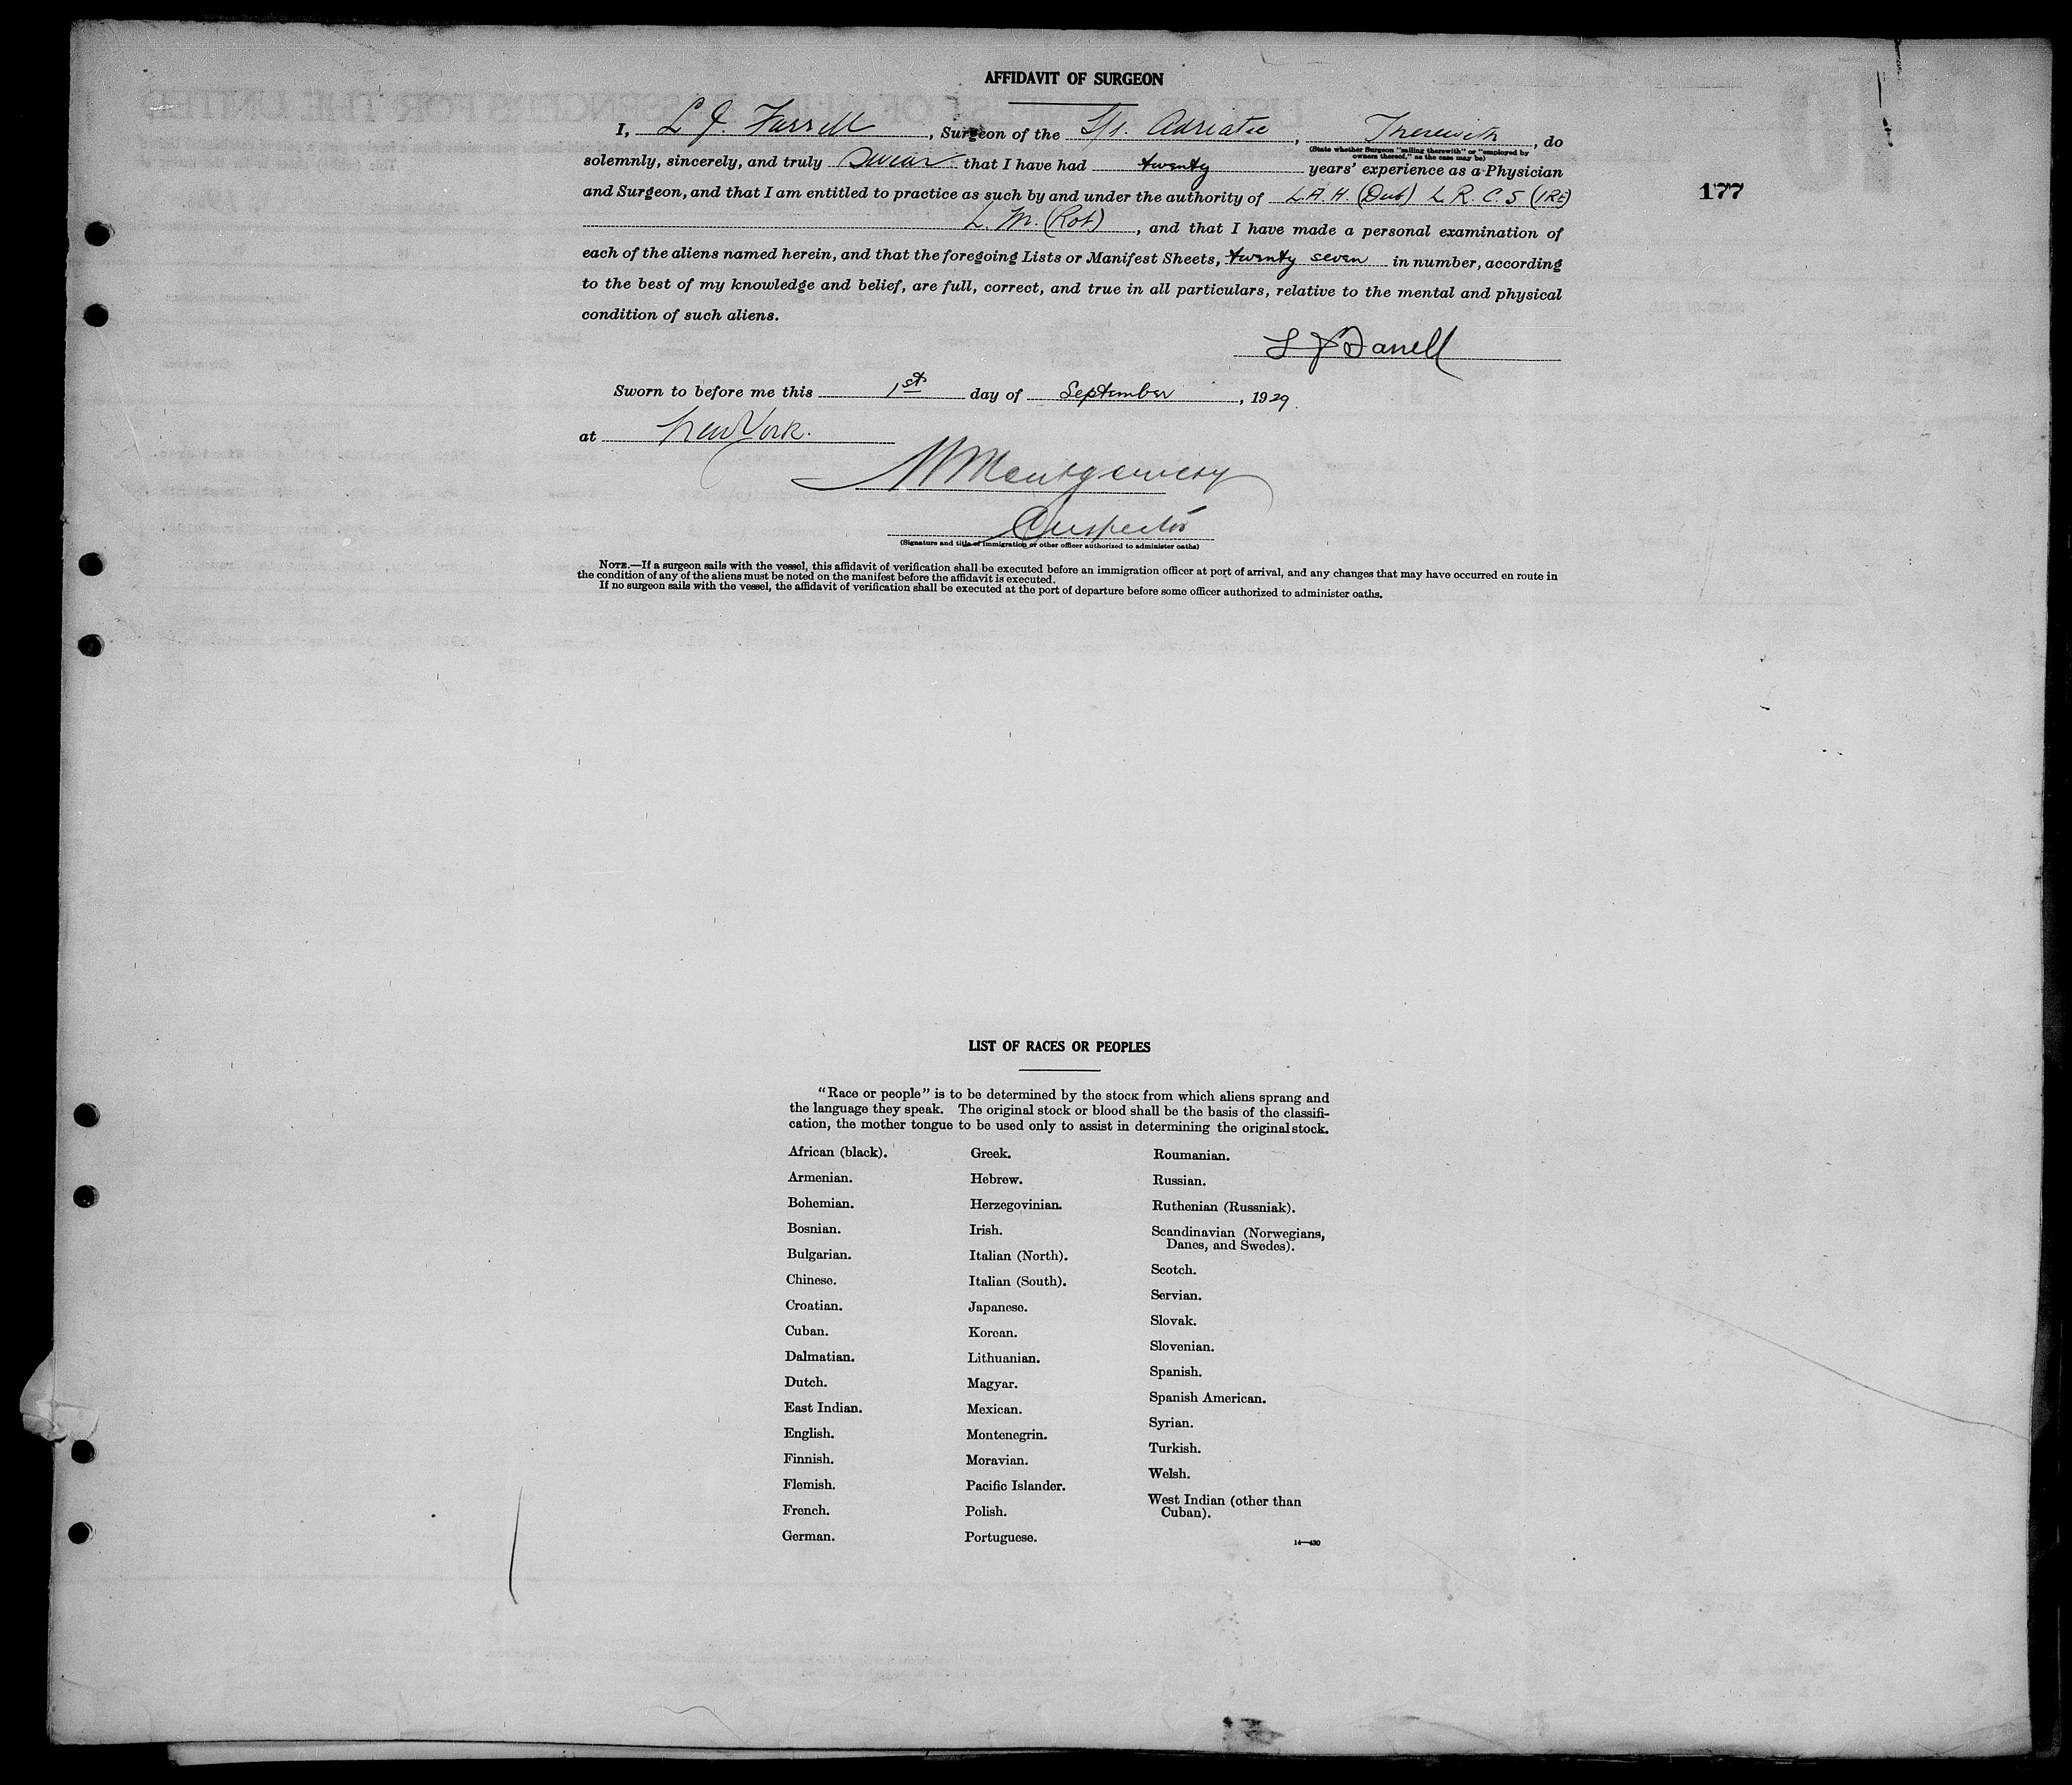 AFFIDAVIT OF SURGEON
I, L J. Farrell, Surgeon of the S/s. Adriatic, Therewith, do
(State whether Surgeon "sailing therewith" or "employed by
owners thereof," as the case may be)
solemnly, sincerely, and truly Swear that I have had twenty years' experience as a Physician
177
and Surgeon, and that I am entitled to practice as such by and under the authority of L.A.H. (Dub) L R. C. S (IRE)
L. M. (Rot), and that I have made a personal examination of
each of the aliens named herein, and that the foregoing Lists or Manifest Sheets, twenty seven in number, according
to the best of my knowledge and belief, are full, correct, and true in all particulars, relative to the mental and physical
condition of such aliens.
L J Farrell
Sworn to before me this 1st day of September, 1929.
at New York.
Montgomery
Inspector
(Signature and title of immigration or other officer authorized to administer oaths)
NOTE.—If a surgeon sails with the vessel, this affidavit of verification shall be executed before an immigration officer at port of arrival, and any changes that may have occurred en route in
the condition of any of the aliens must be noted on the manifest before the affidavit is executed.
If no surgeon sails with the vessel, the affidavit of verification shall be executed at the port of departure before some officer authorized to administer oaths.
LIST OF RACES OR PEOPLES
"Race or people" is to be determined by the stock from which aliens sprang and
the language they speak. The original stock or blood shall be the basis of the classifi-
cation, the mother tongue to be used only to assist in determining the original stock.
African (black).
Armenian.
Bohemian.
Bosnian.
Bulgarian.
Chinese.
Croatian.
Cuban.
Dalmatian.
Dutch.
East Indian.
English.
Finnish.
Flemish.
French.
German.
Greek.
Hebrew.
Herzegovinian.
Irish.
Italian (North).
Italian (South).
Japanese.
Korean.
Lithuanian.
Magyar.
Mexican.
Montenegrin.
Moravian.
Pacific Islander.
Polish.
Portuguese.
Roumanian.
Russian.
Ruthenian (Russniak).
Scandinavian (Norwegians,
Danes, and Swedes).
Scotch.
Servian.
Slovak.
Slovenian.
Spanish.
Spanish American.
Syrian.
Turkish.
Welsh.
West Indian (other than
Cuban).
14—430